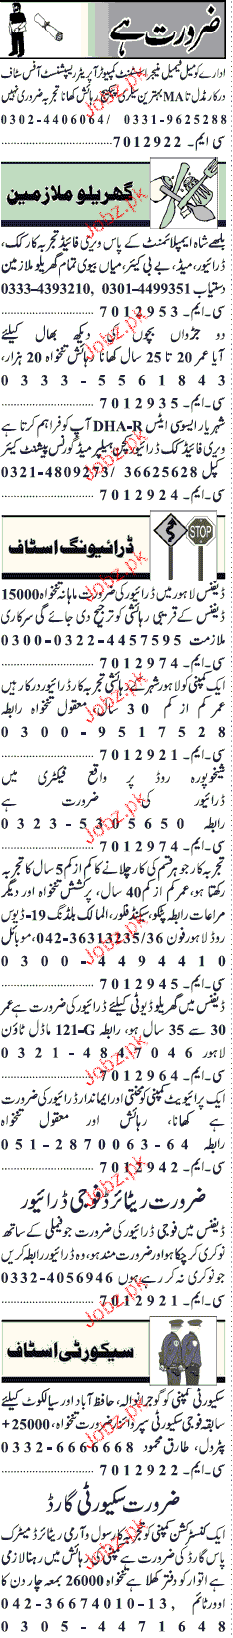 ضرورت ہے
ادارے کو میل فیمیل منیجر اسسٹنٹ کمپیوٹر آپریٹر ریسپشنسٹ آفس سٹاف
درکار مڈل تا MA بہترین سیلری پیکیج رہائش کھانا تجربہ ضروری نہیں
0302-4406064/ 0331-9625288
سی ایم۔ 7012922
گھریلو ملازمین
بلھے شاہ ایمپلائمنٹ کے پاس ویری فائیڈ تجربہ کار کک،
ڈرائیور، میڈ، بے بی کیئر، میاں بیوی تمام گھریلو ملازمین
دستیاب 0301-4499351 ,0333-4393210
سی۔ایم۔ 7012953
دو جڑواں بچوں کی دیکھ بھال کیلئے
آیا عمر 20 تا 25 سال کھانا رہائش تنخواہ 20 ہزار،
0333-5561843
سی۔ایم۔ 7012935
شہریار ایسوسی ایٹس DHA-R آپ کو فراہم کرتا ہے
ویری فائیڈ کک ڈرائیور کچن ہیلپر میڈ گورنس پیشنٹ کیئر
کپل 36625628 /0321-4809273
سی۔ایم۔ 7012924
ڈرائیونگ اسٹاف
STOP
ڈیفنس لاہور میں ڈرائیور کی ضرورت ماہانہ تنخواہ 15000
ڈیفنس کے قریبی رہائشی کو ترجیح دی جائے گی سرکاری
ملازمت 0300-0322-4457595
سی۔ایم۔ 7012974
ایک کمپنی کو لاہور شہر کے رہائشی تجربہ کار ڈرائیور درکار ہیں
عمر کم از کم 30 سال، معقول تنخواہ رابطہ
0300-9517528
سی۔ایم۔ 7012921
شیخوپورہ روڈ پر واقع فیکٹری میں
ڈرائیور کی ضرورت ہے
رابطہ 0323-5305650
سی۔ایم۔ 7012974
تجربہ کار جو ہر قسم کی کار چلانے کا کم از کم 5 سال کا تجربہ
رکھتا ہو، عمر کم از کم 40 سال، پرکشش تنخواہ اور دیگر
مراعات رابطہ پتہ، سیکنڈ فلور، المالک بلڈنگ 19-ڈیوس
روڈ لاہور فون 36/042-36313235، موبائل
0300-4494410
سی۔ایم۔ 7012945
ڈیفنس میں گھریلو ڈیوٹی کیلئے ڈرائیور کی ضرورت ہے عمر
30 سے 35 سال ہو، رابطہ 121-G ماڈل ٹاؤن
لاہور 0321-4847046
سی۔ایم۔ 7012964
ایک پرائیویٹ کمپنی کو محنتی اور ایماندار ڈرائیور کی ضرورت
ہے کھانا، رہائش اور معقول تنخواہ
رابطہ 051-2870063-64
سی۔ایم۔ 7012942
ضرورت ریٹائرڈ فوجی ڈرائیور
ڈیفنس میں فوجی ڈرائیور کی ضرورت جو فیملی کے ساتھ
نوکری کر چکا ہو اور ضرورت مند ہو، وہ ڈرائیور رابطہ کریں
جو نوکری نہ کر رہے ہوں 0332-4056946
سی۔ایم۔ 7012921
سیکورٹی اسٹاف
سکیورٹی کمپنی کو گوجرانوالہ، حافظ آباد اور سیالکوٹ کیلئے
سابقہ فوجی سکیورٹی سپروائزر ضرورت تنخواہ، 25000+
پٹرول، طارق محمود 0332-6666668
سی۔ایم۔ 7012922
ضرورت سکیورٹی گارڈ
ایک کنسٹرکشن کمپنی کو تجربہ کار سول و آرمی ریٹائرڈ میٹرک
پاس گارڈ کی ضرورت ہے کمپنی کی رہائش میں رہنا لازمی
ہے اتوار کو دفتر کھلا ہے تنخواہ 26000 بمعہ چار دن کا
اوور ٹائم 042-36674010-13,
0305-4471648